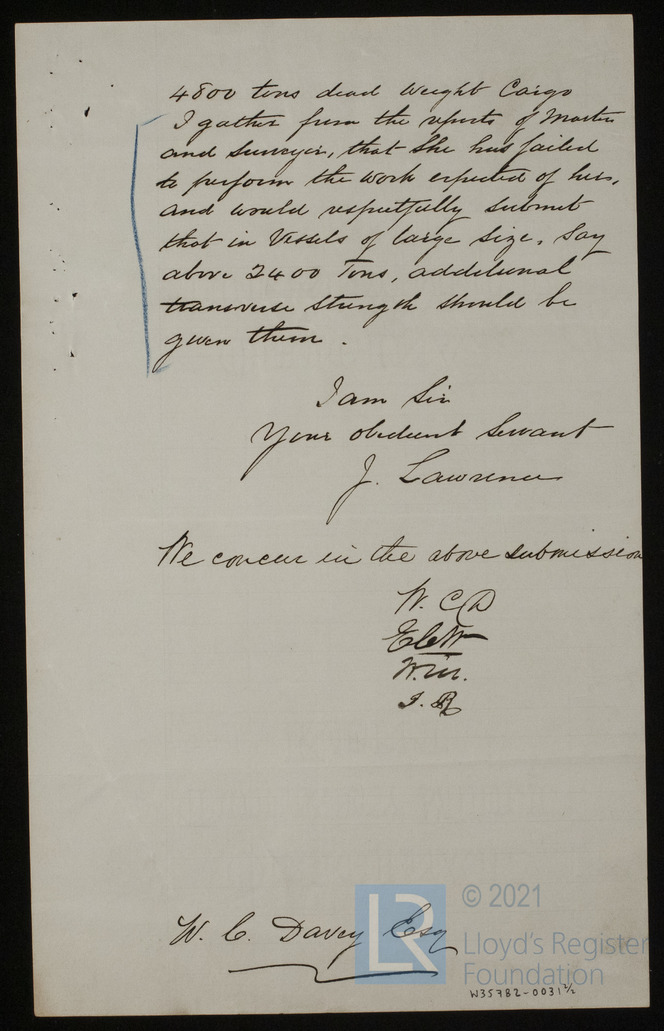 4800 tons dead weight Cargo
I gather from the reports of Master
and Surveyor, that she has failed
to perform the work expected of her,
and would respectfully submit
that in Vessels of large size, say
above 2400 Tons, additional
transverse strength should be
given them.
I am Sir
Your obedient Servant
J. Lawrence
We concur in the above submission
W. C. D
W.M.
J. R
W. C. Davey Esq
LR
© 2021
Lloyd's Register
Foundation
W35782-0031 2/2